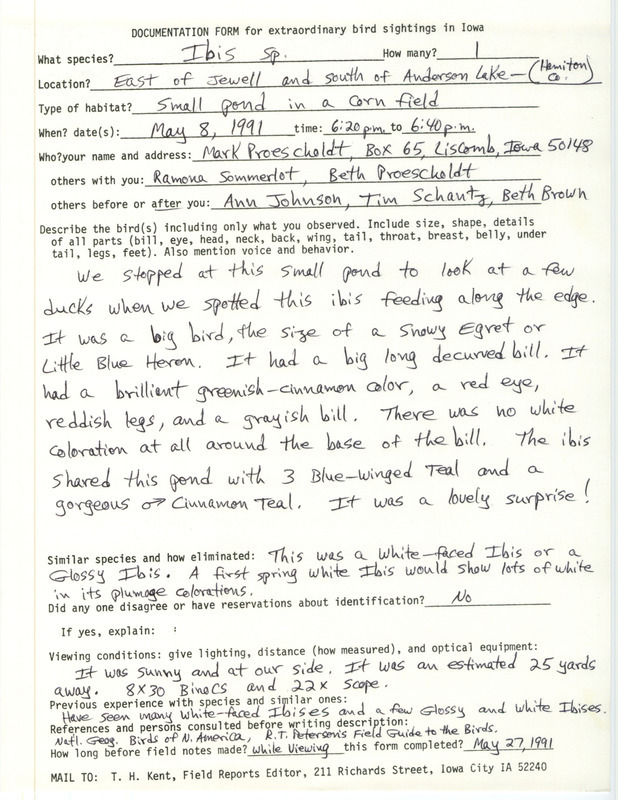 DOCUMENTATION FORM for extraordinary bird sightings in Iowa
What species? Ibis sp. How many? 1
Location? East of Jewell and south of Anderson Lake - (Hamilton Co.)
Type of habitat? Small pond in a corn field
When? date(s): May 8, 1991 time: 6:20 p.m. to 6:40 p.m.
Who?your name and address: Mark Proescholdt, Box 65, Liscomb, Iowa 50148
others with you: Ramona Sommerlot, Beth Proescholdt
others before or after you: Ann Johnson, Tim Schantz, Beth Brown
Describe the bird(s) including only what you observed. Include size, shape, details
of all parts (bill, eye, head, neck, back, wing, tail, throat, breast, belly, under
tail, legs, feet). Also mention voice and behavior.
We stopped at this small pond to look at a few
ducks when we spotted this ibis feeding along the edge.
It was a big bird, the size of a Snowy Egret or
Little Blue Heron. It had a big long decurved bill. It
had a brillient greenish-cinnamon color, a red eye,
reddish legs, and a grayish bill. There was no white
coloration at all around the base of the bill. The ibis
shared this pond with 3 Blue-winged Teal and a
gorgeous ♂ Cinnamon Teal. It was a lovely surprise!
Similar species and how eliminated: This was a White-faced Ibis or a
Glossy Ibis. A first spring white Ibis would show lots of white
in its plumage colorations.
Did any one disagree or have reservations about identification? No
If yes, explain: :
Viewing conditions: give lighting, distance (how measured), and optical equipment:
It was sunny and at our side. It was an estimated 25 yards
away. 8X30 Binocs and 22x scope.
Previous experience with species and similar ones:
Have seen many White-faced Ibises and a few Glossy and White Ibises.
References and persons consulted before writing description:
Natl. Geog. Birds of N. America, R.T. Peterson's Field Guide to the Birds.
How long before field notes made? while viewing this form completed? May 27, 1991
MAIL TO: T. H. Kent, Field Reports Editor, 211 Richards Street, Iowa City IA 52240